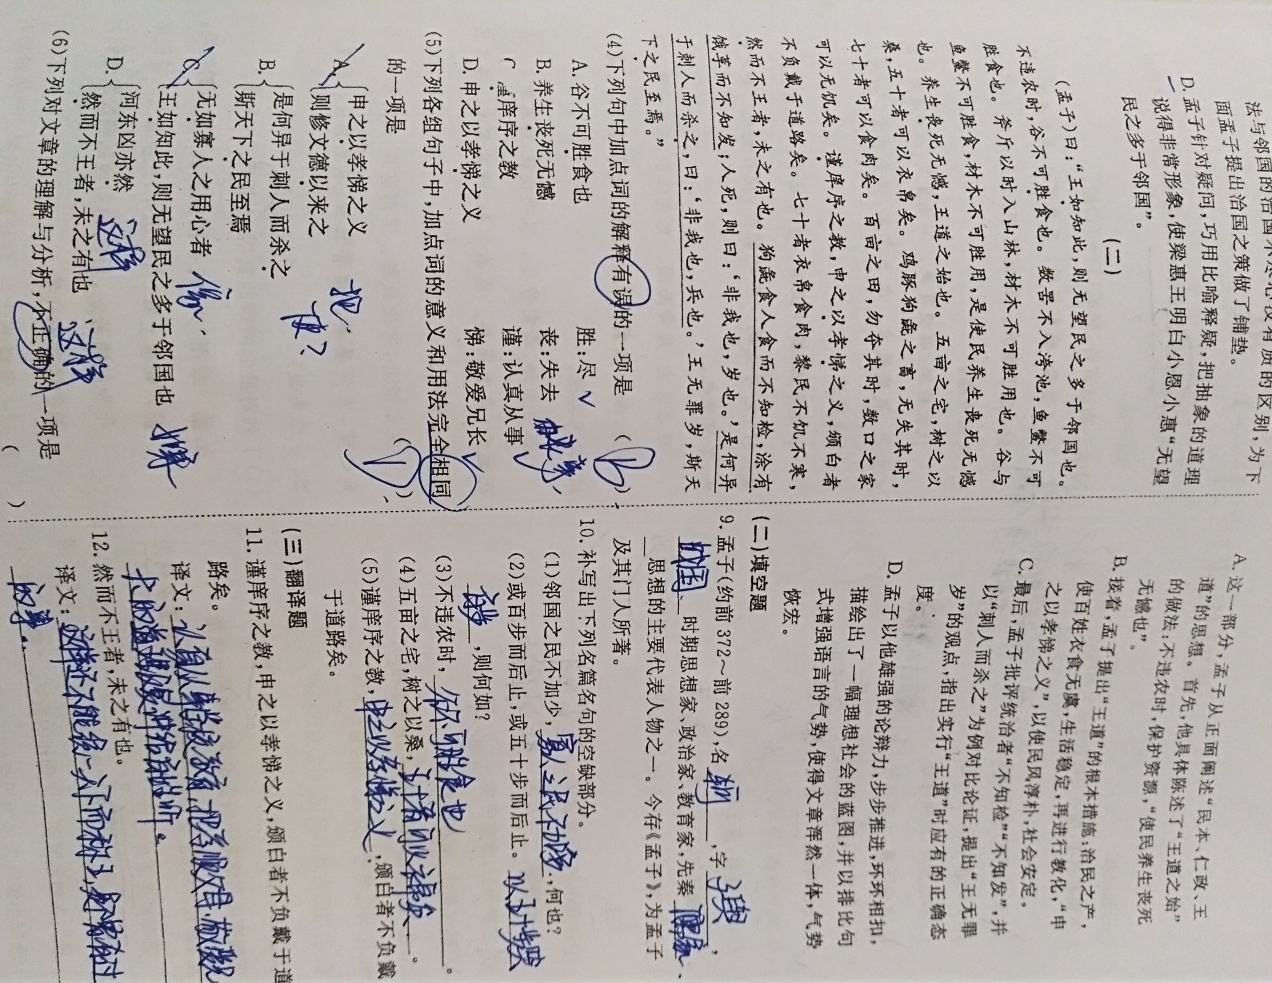 法与邻国的治国不尽心没有质的区别,为下
面孟子提出治国之策做了铺垫。
D. 孟子针对疑问,巧用比喻释疑,把抽象的道理
说得非常形象,使梁惠王明白小恩小惠“无望
民之多于邻国”。
(二)
(孟子)曰:“王如知此,则无望民之多于邻国也。
不违农时,谷不可胜食也。数罟不入洿池,鱼鳖不可
胜食也。斧斤以时入山林,材木不可胜用也。谷与
鱼鳖不可胜食,材木不可胜用,是使民养生丧死无憾
也。养生丧死无憾,王道之始也。五亩之宅,树之以
桑,五十者可以衣帛矣。鸡豚狗彘之畜,无失其时,
七十者可以食肉矣。百亩之田,勿夺其时,数口之家
可以无饥矣。谨庠序之教,申之以孝悌之义,颁白者
不负戴于道路矣。七十者衣帛食肉,黎民不饥不寒,
然而不王者,未之有也。狗彘食人食而不知检,涂有
饿莩而不知发;人死,则曰:‘非我也,岁也。’是何异
于刺人而杀之,曰:‘非我也,兵也。’王无罪岁,斯天
下之民至焉。”
(4)下列句中加点词的解释有误的一项是 ( B )
A. 谷不可胜食也 胜:尽 ✓
B. 养生丧死无憾 丧:失去
C 谨庠序之教 谨:认真从事 ✓
D. 申之以孝悌之义 悌:敬爱兄长 ✓
(5)下列各组句子中,加点词的意义和用法完全相同
的一项是 ( D )
A. 申之以孝悌之义 把
则修文德以来之
B. 是何异于刺人而杀之
斯天下之民至焉
C. 无如寡人之用心者 像
王如知此,则无望民之多于邻国也 如果
D. 河东凶亦然 这样
然而不王者,未之有也 这样
(6)下列对文章的理解与分析,不正确的一项是
( )
A. 这一部分,孟子从正面阐述“民本、仁政、王
道”的思想。首先,他具体陈述了“王道之始”
的做法:不违农时,保护资源,“使民养生丧死
无憾也”。
B. 接着,孟子提出“王道”的根本措施:治民之产,
使百姓衣食无虞,生活稳定,再进行教化,“申
之以孝悌之义”,以使民风淳朴,社会安定。
C. 最后,孟子批评统治者“不知检”“不知发”,并
以“刺人而杀之”为例对比论证,提出“王无罪
岁”的观点,指出实行“王道”时应有的正确态
度。
D. 孟子以他雄强的论辩力,步步推进,环环相扣,
描绘出了一幅理想社会的蓝图,并以排比句
式增强语言的气势,使得文章浑然一体,气势
恢宏。
(二)填空题
9. 孟子(约前372~前289),名 轲 ,字 子舆 ,
战国 时期思想家、政治家、教育家,先秦 儒家 、
思想的主要代表人物之一。今存《孟子》,为孟子
及其门人所著。
10. 补写出下列名篇名句的空缺部分。
(1)邻国之民不加少, 寡人之民不加多 ,何也?
(2)或百步而后止,或五十步而后止。 以五十步笑
百步 ,则何如?
(3)不违农时, 谷不可胜食也 。
(4)五亩之宅,树之以桑, 五十者可以衣帛矣 。
(5)谨庠序之教, 申之以孝悌之义 ,颁白者不负戴
于道路矣。
(三)翻译题
11. 谨庠序之教,申之以孝悌之义,颁白者不负戴于道
路矣。
译文: 认真从事学校教育,把孝顺父母,敬爱兄
12. 然而不王者,未之有也。
译文: 这样还不能使天下而称王,是没有过
的事。